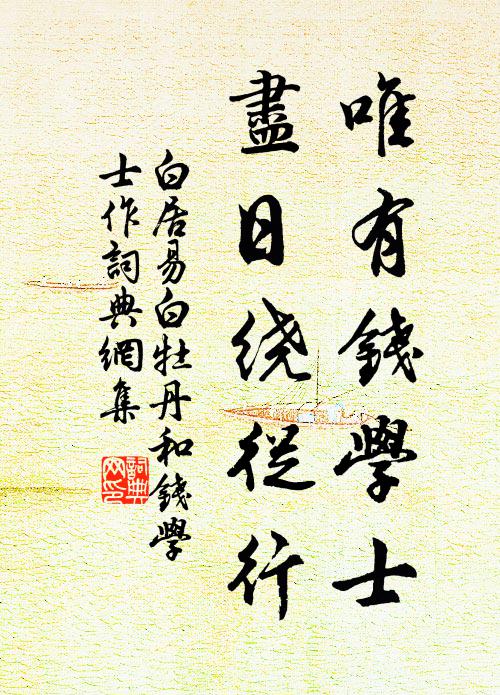 唯有錢學士
盡日绕從行
白居易白牡丹和錢學
士作詞典網集
詞典
网印